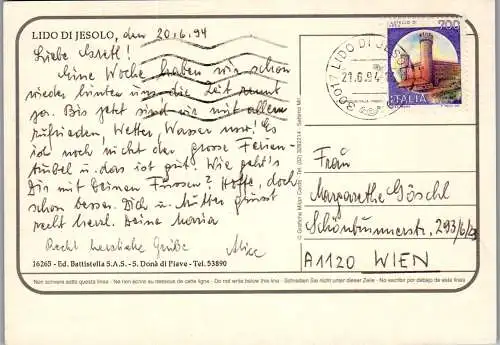 LIDO DI JESOLO, den 20.6.94
Liebe Gretl!
Eine Woche haben wir schon
wieder hinten uns die Zeit rennt
so. Bis jetzt sind wir mit allem
zufrieden, Wetter, Wasser usw! Es
ist noch nicht der grosse Ferien-
trubel u. das ist gut! Wie geht's
Dir mit Deinen Füssen? Hoffe, doch
schon besser. Dich u. Mutter grüsst
recht herzl. Deine Maria
Recht herzliche Grüße Alice
16265 - Ed. Battistella S.A.S. - S. Donà di Piave - Tel. 53890
Non scrivere sotto questa linea - Ne non ecrire au dessous de cette ligne - Do not write below this line - Schreiben Sie nicht unter dieser Zeile - No escribir por debajo de esta linea
700
ITALIA
30017 LIDO DI JESOLO
21.6.94
Frau
Margarethe Göschl
Schönbrunnerstr. 293/6/29
A1120 WIEN